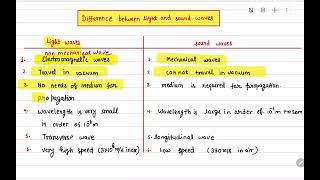 Difference between light and sound waves
Light waves
sound waves
non mechanical wave
1. Electromagnetic waves
1. Mechanical waves
2. Travel in vacuum
2. can not travel in vacuum
3. No needs of medium for
propagation
3. medium is required for propagation.
4. wavelength is very small
in order of 10
4. Wavelength is large in order of
5. Transverse wave
5. longitudinal wave
6. very high speed (3×10⁸m/s in air)
6. Low speed (330m/s in air)